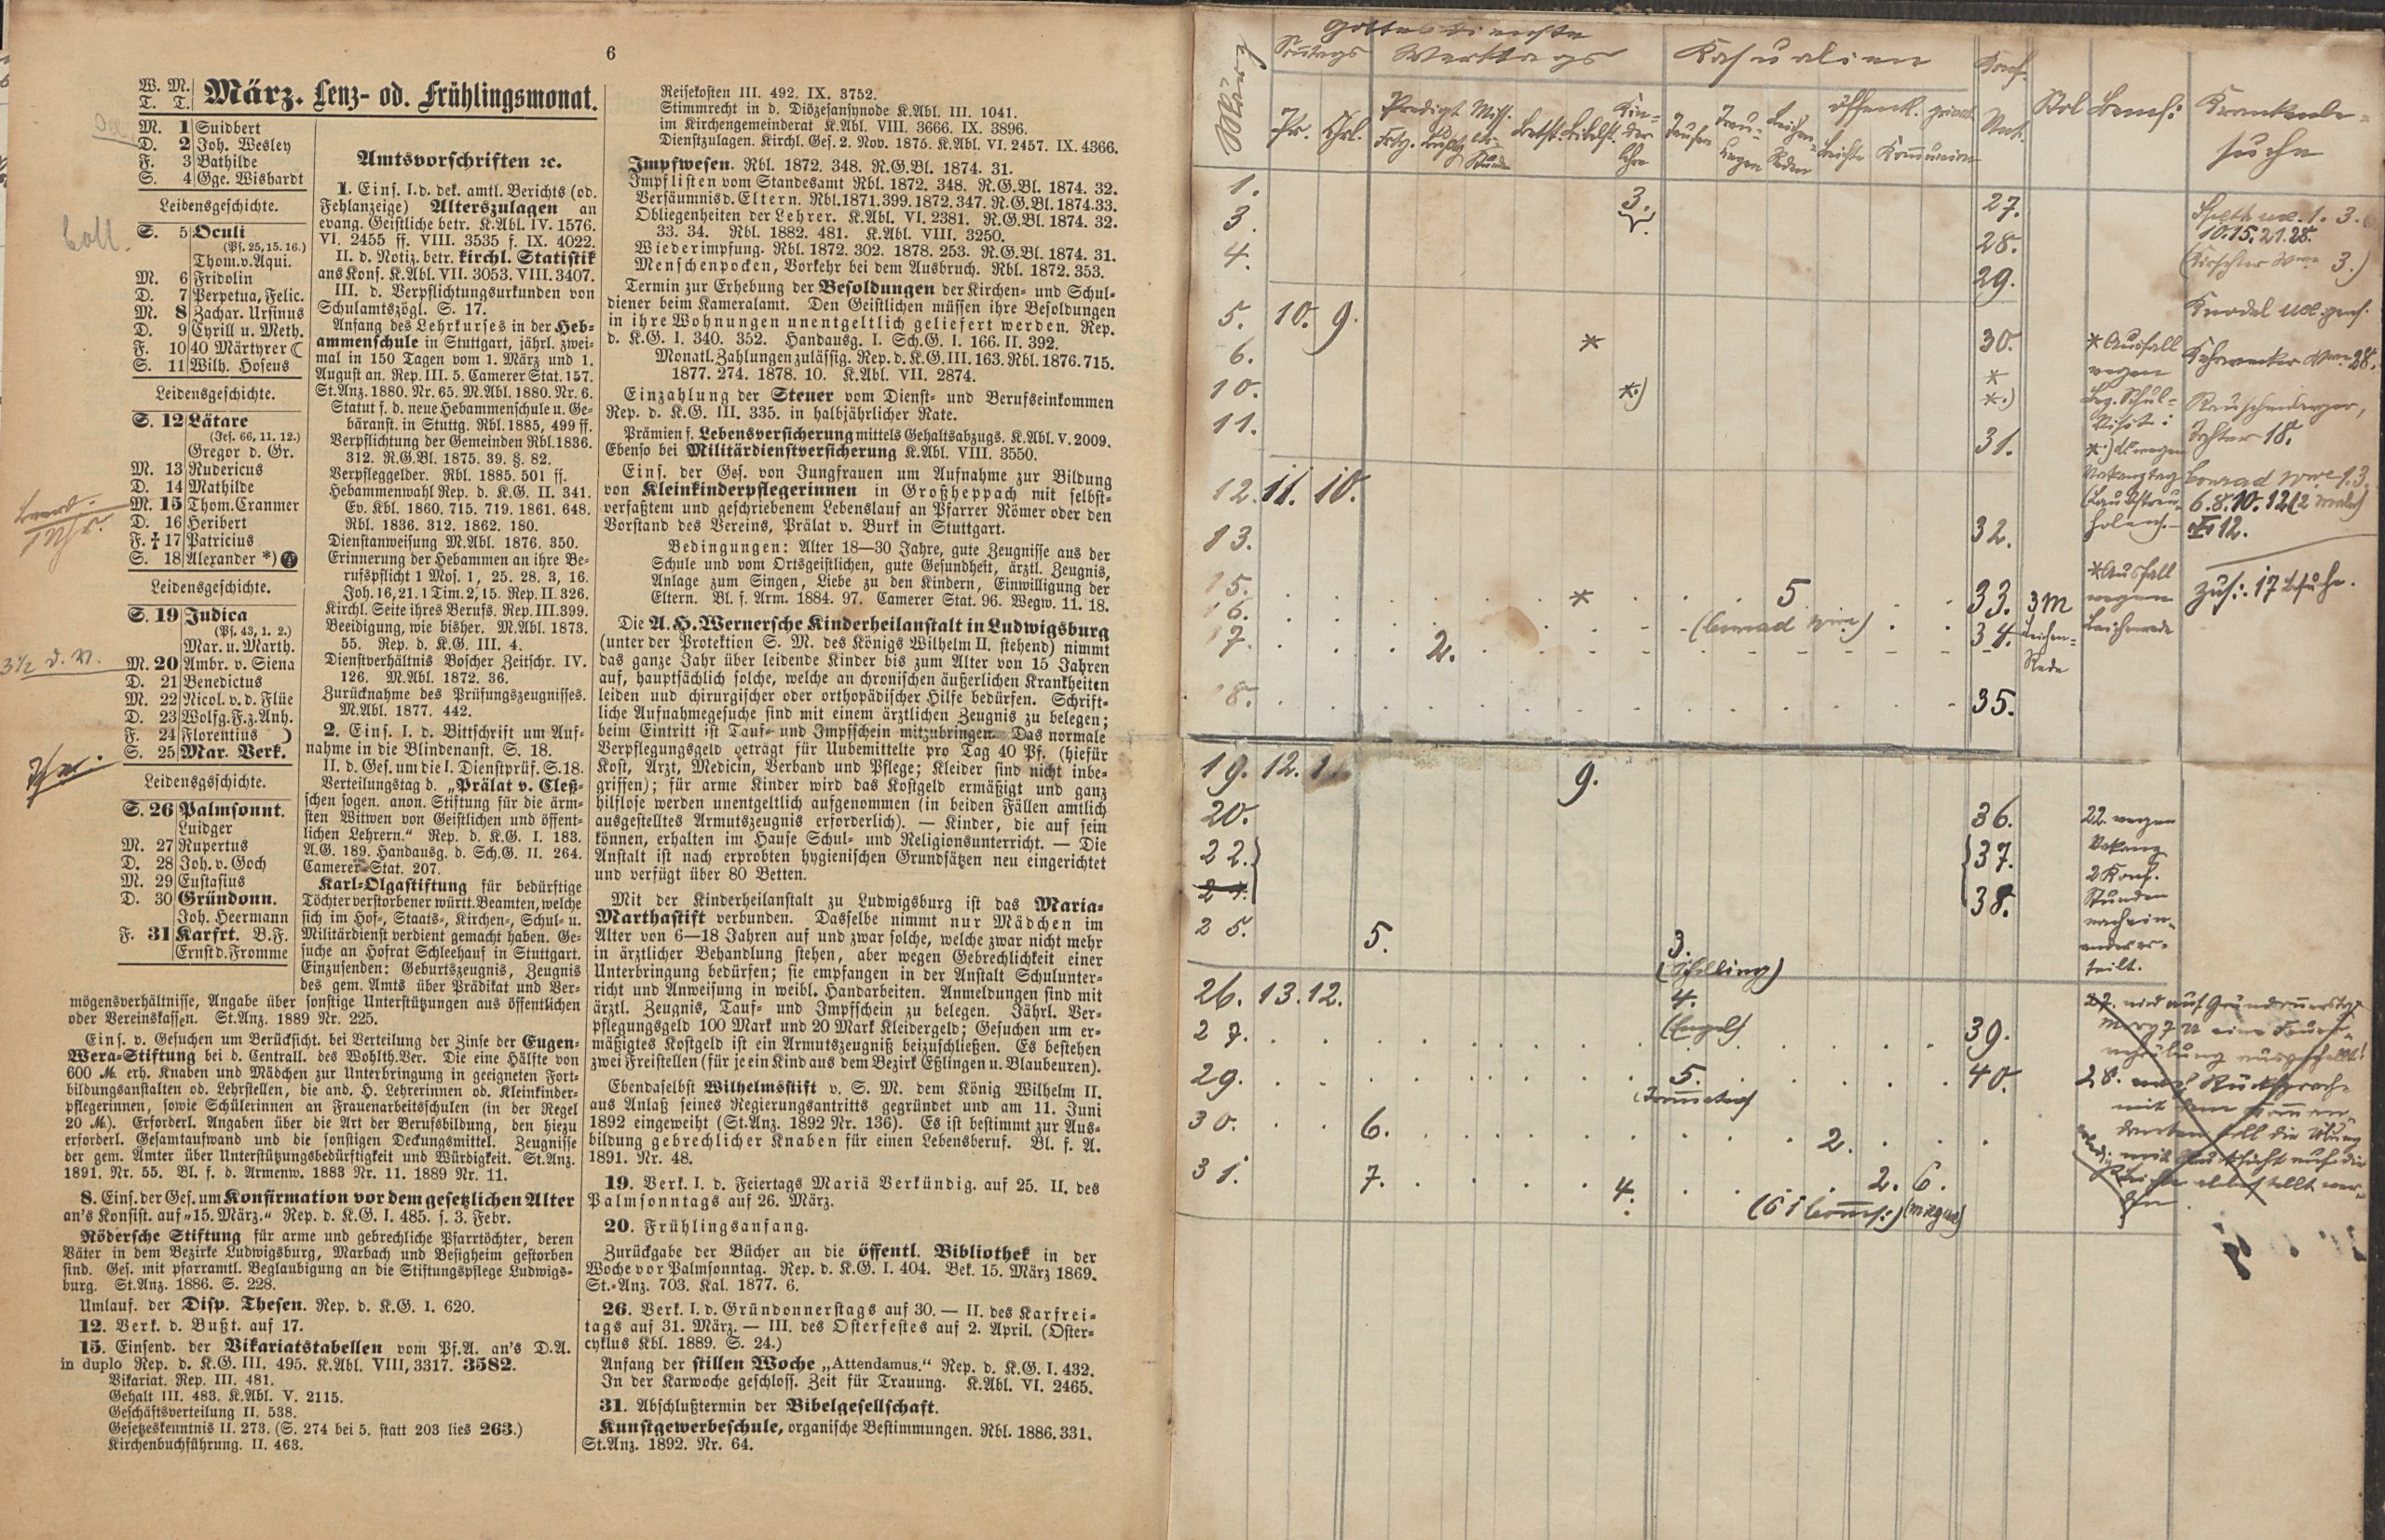 6
W. M. März. Lenz- od. Frühlingsmonat.
T. T.
M. 1 Suidbert
D. 2 Joh. Wesley
F. 3 Bathilde
S. 4 Gge. Wishardt
Leidensgeschichte.
S. 5 Oculi
(Ps. 25, 15. 16.)
Thom. v. Aqui.
M. 6 Fridolin
D. 7 Perpetua, Felic.
M. 8 Zachar. Ursinus
D. 9 Cyrill u. Meth.
F. 10 40 Märtyrer ☾
S. 11 Wilh. Hoseus
Leidensgeschichte.
S. 12 Lätare
(Jes. 66, 11. 12.)
Gregor d. Gr.
M. 13 Rudericus
D. 14 Mathilde
M. 15 Thom. Cranmer
D. 16 Heribert
F. † 17 Patricius
S. 18 Alexander *)
Leidensgeschichte.
S. 19 Judica
(Ps. 43, 1. 2.)
Mar. u. Marth.
M. 20 Ambr. v. Siena
D. 21 Benedictus
M. 22 Nicol. v. d. Flüe
D. 23 Wolfg. F. z. Anh.
F. 24 Florentius
S. 25 Mar. Verk.
Leidensgschichte.
S. 26 Palmsonnt.
Luidger
M. 27 Rupertus
D. 28 Joh. v. Goch
M. 29 Eustasius
D. 30 Gründonn.
Joh. Heermann
F. 31 Karfrt. B.F.
Ernst d. Fromme
Coll.
3½ d. N.
Amtsvorschriften ꝛc.
1. Eins. I. d. dek. amtl. Berichts (od.
Fehlanzeige) Alterszulagen an
evang. Geistliche betr. K.Abl. IV. 1576.
VI. 2455 ff. VIII. 3535 f. IX. 4022.
II. d. Notiz. betr. kirchl. Statistik
ans Kons. K.Abl. VII. 3053. VIII. 3407.
III. d. Verpflichtungsurkunden von
Schulamtszögl. S. 17.
Anfang des Lehrkurses in der Heb-
ammenschule in Stuttgart, jährl. zwei-
mal in 150 Tagen vom 1. März und 1.
August an. Rep. III. 5. Camerer Stat. 157.
St.Anz. 1880. Nr. 65. M.Abl. 1880. Nr. 6.
Statut f. d. neue Hebammenschule u. Ge-
bäranst. in Stuttg. Rbl. 1885, 499 ff.
Verpflichtung der Gemeinden Rbl. 1836.
312. R.G.Bl. 1875. 39. §. 82.
Verpfleggelder. Rbl. 1885. 501 ff.
Hebammenwahl Rep. d. K.G. II. 341.
Ev. Kbl. 1860. 715. 719. 1861. 648.
Rbl. 1836. 312. 1862. 180.
Dienstanweisung M.Abl. 1876. 350.
Erinnerung der Hebammen an ihre Be-
rufspflicht 1 Mos. 1, 25. 28. 3, 16.
Joh. 16, 21. 1 Tim. 2, 15. Rep. II. 326.
Kirchl. Seite ihres Berufs. Rep. III. 399.
Beeidigung, wie bisher. M.Abl. 1873.
55. Rep. d. K.G. III. 4.
Dienstverhältnis Boscher Zeitschr. IV.
126. M.Abl. 1872. 36.
Zurücknahme des Prüfungszeugnisses.
M.Abl. 1877. 442.
2. Eins. I. d. Bittschrift um Auf-
nahme in die Blindenanst. S. 18.
II. d. Ges. um die I. Dienstprüf. S. 18.
Verteilungstag d. „Prälat v. Cleß-
schen sogen. anon. Stiftung für die ärm-
sten Witwen von Geistlichen und öffent-
lichen Lehrern.“ Rep. d. K.G. I. 183.
A.G. 189. Handausg. d. Sch.G. II. 264.
Camerer Stat. 207.
Karl-Olgastiftung für bedürftige
Töchter verstorbener württ. Beamten, welche
sich im Hof-, Staats-, Kirchen-, Schul- u.
Militärdienst verdient gemacht haben. Ge-
suche an Hofrat Schleehauf in Stuttgart.
Einzusenden: Geburtszeugnis, Zeugnis
des gem. Amts über Prädikat und Ver-
mögensverhältnisse, Angabe über sonstige Unterstützungen aus öffentlichen
oder Vereinskassen. St.Anz. 1889 Nr. 225.
Eins. v. Gesuchen um Berücksicht. bei Verteilung der Zinse der Eugen-
Wera-Stiftung bei d. Centrall. des Wohlth.Ver. Die eine Hälfte von
600 M. erh. Knaben und Mädchen zur Unterbringung in geeigneten Fort-
bildungsanstalten od. Lehrstellen, die and. H. Lehrerinnen od. Kleinkinder-
pflegerinnen, sowie Schülerinnen an Frauenarbeitsschulen (in der Regel
20 M.). Erforderl. Angaben über die Art der Berufsbildung, den hiezu
erforderl. Gesamtaufwand und die sonstigen Deckungsmittel. Zeugnisse
der gem. Ämter über Unterstützungsbedürftigkeit und Würdigkeit. St.Anz.
1891. Nr. 55. Bl. f. d. Armenw. 1883 Nr. 11. 1889 Nr. 11.
8. Eins. der Ges. um Konfirmation vor dem gesetzlichen Alter
an's Konsist. auf „15. März.“ Rep. d. K.G. I. 485. s. 3. Febr.
Rödersche Stiftung für arme und gebrechliche Pfarrtöchter, deren
Väter in dem Bezirke Ludwigsburg, Marbach und Besigheim gestorben
sind. Ges. mit pfarramtl. Beglaubigung an die Stiftungspflege Ludwigs-
burg. St.Anz. 1886. S. 228.
Umlauf. der Disp. Thesen. Rep. d. K.G. I. 620.
12. Verk. d. Bußt. auf 17.
15. Einsend. der Vikariatstabellen vom Pf.A. an's D.A.
in duplo Rep. d. K.G. III. 495. K.Abl. VIII, 3317. 3582.
Vikariat. Rep. III. 481.
Gehalt III. 483. K.Abl. V. 2115.
Geschäftsverteilung II. 538.
Gesetzeskenntnis II. 273. (S. 274 bei 5. statt 203 lies 263.)
Kirchenbuchführung. II. 463.
Reisekosten III. 492. IX. 3752.
Stimmrecht in d. Diözesansynode K.Abl. III. 1041.
im Kirchengemeinderat K.Abl. VIII. 3666. IX. 3896.
Dienstzulagen. Kirchl. Ges. 2. Nov. 1875. K.Abl. VI. 2457. IX. 4366.
Impfwesen. Rbl. 1872. 348. R.G.Bl. 1874. 31.
Impflisten vom Standesamt Rbl. 1872. 348. R.G.Bl. 1874. 32.
Versäumnis d. Eltern. Rbl. 1871. 399. 1872. 347. R.G.Bl. 1874. 33.
Obliegenheiten der Lehrer. K.Abl. VI. 2381. R.G.Bl. 1874. 32.
33. 34. Rbl. 1882. 481. K.Abl. VIII. 3250.
Wiederimpfung. Rbl. 1872. 302. 1878. 253. R.G.Bl. 1874. 31.
Menschenpocken, Vorkehr bei dem Ausbruch. Rbl. 1872. 353.
Termin zur Erhebung der Besoldungen der Kirchen- und Schul-
diener beim Kameralamt. Den Geistlichen müssen ihre Besoldungen
in ihre Wohnungen unentgeltlich geliefert werden. Rep.
d. K.G. I. 340. 352. Handausg. I. Sch.G. I. 166. II. 392.
Monatl. Zahlungen zulässig. Rep. d. K.G. III. 163. Rbl. 1876. 715.
1877. 274. 1878. 10. K.Abl. VII. 2874.
Einzahlung der Steuer vom Dienst- und Berufseinkommen
Rep. d. K.G. III. 335. in halbjährlicher Rate.
Prämien f. Lebensversicherung mittels Gehaltsabzugs. K.Abl. V. 2009.
Ebenso bei Militärdienstversicherung K.Abl. VIII. 3550.
Eins. der Ges. von Jungfrauen um Aufnahme zur Bildung
von Kleinkinderpflegerinnen in Großheppach mit selbst-
verfaßtem und geschriebenem Lebenslauf an Pfarrer Römer oder den
Vorstand des Vereins, Prälat v. Burk in Stuttgart.
Bedingungen: Alter 18—30 Jahre, gute Zeugnisse aus der
Schule und vom Ortsgeistlichen, gute Gesundheit, ärztl. Zeugnis,
Anlage zum Singen, Liebe zu den Kindern, Einwilligung der
Eltern. Bl. f. Arm. 1884. 97. Camerer Stat. 96. Wegw. 11. 18.
Die A. H. Wernersche Kinderheilanstalt in Ludwigsburg
(unter der Protektion S. M. des Königs Wilhelm II. stehend) nimmt
das ganze Jahr über leidende Kinder bis zum Alter von 15 Jahren
auf, hauptsächlich solche, welche an chronischen äußerlichen Krankheiten
leiden und chirurgischer oder orthopädischer Hilfe bedürfen. Schrift-
liche Aufnahmegesuche sind mit einem ärztlichen Zeugnis zu belegen;
beim Eintritt ist Tauf- und Impfschein mitzubringen. Das normale
Verpflegungsgeld beträgt für Unbemittelte pro Tag 40 Pf. (hiefür
Kost, Arzt, Medicin, Verband und Pflege; Kleider sind nicht inbe-
griffen); für arme Kinder wird das Kostgeld ermäßigt und ganz
hilflose werden unentgeltlich aufgenommen (in beiden Fällen amtlich
ausgestelltes Armutszeugnis erforderlich). — Kinder, die auf sein
können, erhalten im Hause Schul- und Religionsunterricht. — Die
Anstalt ist nach erprobten hygienischen Grundsätzen neu eingerichtet
und verfügt über 80 Betten.
Mit der Kinderheilanstalt zu Ludwigsburg ist das Maria-
Marthastift verbunden. Dasselbe nimmt nur Mädchen im
Alter von 6—18 Jahren auf und zwar solche, welche zwar nicht mehr
in ärztlicher Behandlung stehen, aber wegen Gebrechlichkeit einer
Unterbringung bedürfen; sie empfangen in der Anstalt Schulunter-
richt und Anweisung in weibl. Handarbeiten. Anmeldungen sind mit
ärztl. Zeugnis, Tauf- und Impfschein zu belegen. Jährl. Ver-
pflegungsgeld 100 Mark und 20 Mark Kleidergeld; Gesuchen um er-
mäßigtes Kostgeld ist ein Armutszeugniß beizuschließen. Es bestehen
zwei Freistellen (für je ein Kind aus dem Bezirk Eßlingen u. Blaubeuren).
Ebendaselbst Wilhelmsstift v. S. M. dem König Wilhelm II.
aus Anlaß seines Regierungsantritts gegründet und am 11. Juni
1892 eingeweiht (St.Anz. 1892 Nr. 136). Es ist bestimmt zur Aus-
bildung gebrechlicher Knaben für einen Lebensberuf. Bl. f. A.
1891. Nr. 48.
19. Verk. I. d. Feiertags Mariä Verkündig. auf 25. II. des
Palmsonntags auf 26. März.
20. Frühlingsanfang.
Zurückgabe der Bücher an die öffentl. Bibliothek in der
Woche vor Palmsonntag. Rep. d. K.G. I. 404. Bek. 15. März 1869.
St.-Anz. 703. Kal. 1877. 6.
26. Verk. I. d. Gründonnerstags auf 30. — II. des Karfrei-
tags auf 31. März. — III. des Osterfestes auf 2. April. (Oster-
cyklus Kbl. 1889. S. 24.)
Anfang der stillen Woche „Attendamus.“ Rep. d. K.G. I. 432.
In der Karwoche geschloss. Zeit für Trauung. K.Abl. VI. 2465.
31. Abschlußtermin der Bibelgesellschaft.
Kunstgewerbeschule, organische Bestimmungen. Rbl. 1886. 331.
St.Anz. 1892. Nr. 64.
März
Gottesdienste
Sonntags Werktags Kasualien Konf.
Pr. Chrl. Predigt Miss. Betst. Bibelst. Kin- Taufen Trau- Leichen- öffentl. privat Unt. Stol Bemk: Krankenbe-
der ungen Reden Beichte Kommunion suche
lehre
1. 3. 27.
3. 28.
4. 29.
5. 10. 9.
6. * 30. * Ausfall
10. *.) * wegen
*.)
11. 31.
12. 11. 10.
6. 8. 10. 12 (2 mal)
13. 32.
15. * 5 33. 3 M * Ausfall wegen Leichenrede
zus: 17 Besuche.
16. (Conrad Wwe) 34. Leichen-
17. 2. Rede
18. 35.
19. 12. 9.
20. 36. 22. wegen
22. 37. Vakanz
24. 38. 2 Konf.
Stunden
25. 5. 3. nachein-
(Schilling) ander er-
teilt.
26. 13. 12. 4.
27. (Engel) 39.
29. 5. 40.
30. 6. 2.
31. 7. 4. 2. 6.